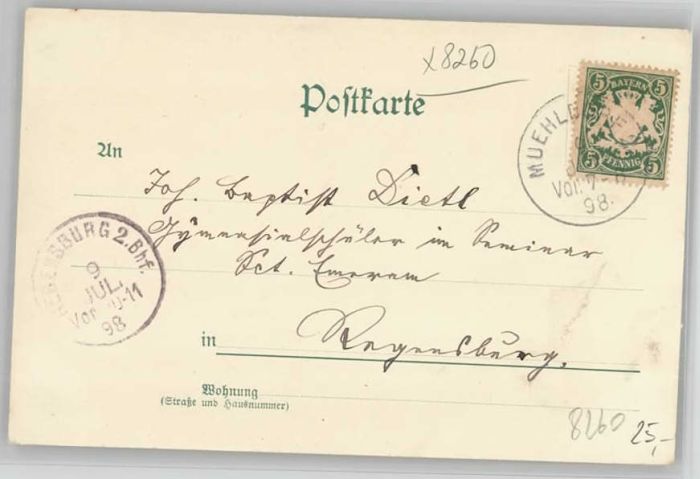 x8260
5 BAYERN 5
5 PFENNIG 5
Postkarte
MUEHLD
Vor. 7-
98.
An
Joh. Baptist Dietl
Gymnasialschüler im Seminar
Sct. Emeram
REGENSBURG 2. Bhf.
9
JUL.
Vor. 10-11
98
in Regensburg.
Wohnung
(Straße und Hausnummer)
8260
25,-